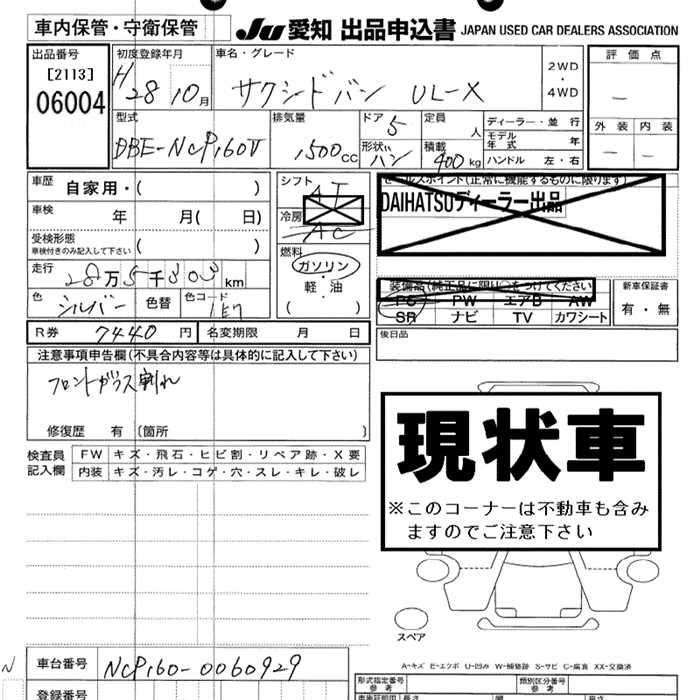 車内保管・守衛保管
JU 愛知 出品申込書 JAPAN USED CAR DEALERS ASSOCIATION
出品番号
[2113]
06004
初度登録年月
H 28 10月
車名・グレード
サクシードバン UL-X
2WD
・
4WD
評価点
—
型式
DBE-NCP160V
排気量
1500cc
ドア 5
形状 バン
定員 人
積載 400kg
ディーラー・並行
モデル年式 年
ハンドル 左・右
外装 内装
— —
車歴 自家用・( )
シフト AT
車検 年 月( 日)
冷房 AC
受検形態
車検付きのみ記入して下さい ( )
燃料
ガソリン
・
軽・油
( )
走行 28万5千303km
色 シルバー 色替 色コード 1E7
セールスポイント(正常に機能するものに限ります)
DAIHATSUディーラー出品
装備品(純正品に限り○をつけてください
PS PW エアB AW
SR ナビ TV カワシート
新車保証書
有・無
R券 7440円 名変期限 月 日
後日品
注意事項申告欄(不具合内容等は具体的に記入して下さい)
フロントガラス割れ
修復歴 有 〔箇所 〕
検査員記入欄
FW キズ・飛石・ヒビ割・リペア跡・X要
内装 キズ・汚レ・コゲ・穴・スレ・キレ・破レ
現状車
※このコーナーは不動車も含み
ますのでご注意下さい
スペア
A-キズ E-エクボ U-凹み W-補修跡 S-サビ C-腐食 XX-交換済
N
車台番号 NCP160-0060929
登録番号
型式指定番号
参考
類別区分番号
参考
長さ
高さ